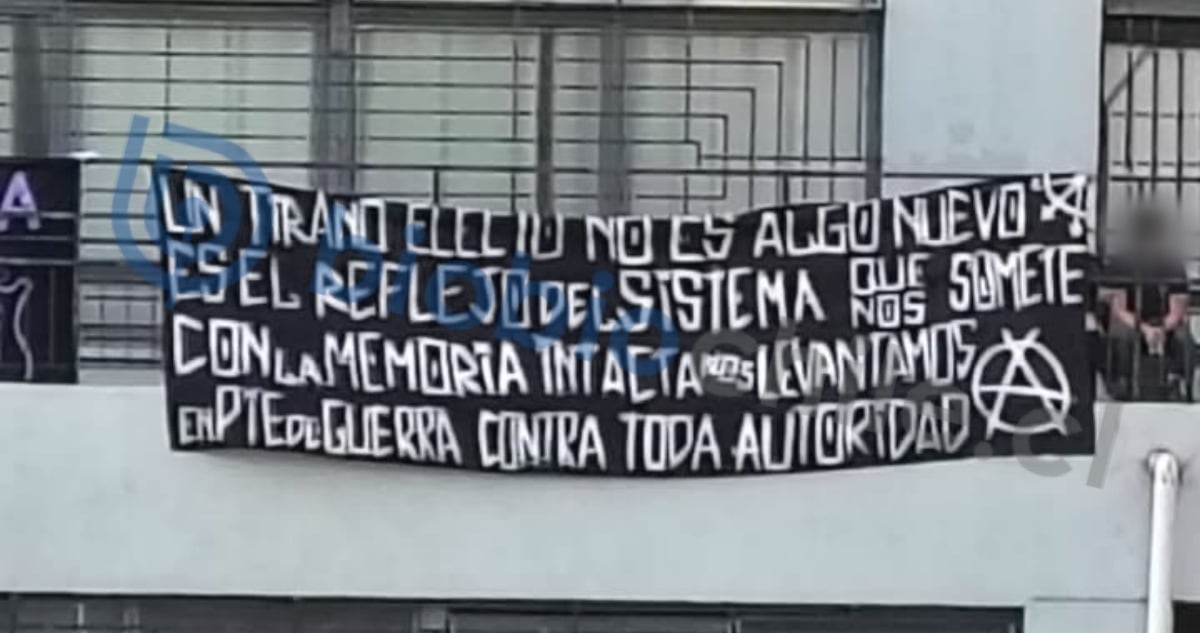 UN TIRANO ELECTO NO ES ALGO NUEVO
ES EL REFLEJO DEL SISTEMA QUE NOS SOMETE
CON LA MEMORIA INTACTA NOS LEVANTAMOS
EN PTE DE GUERRA CONTRA TODA AUTORIDAD
A
biobiochile.cl